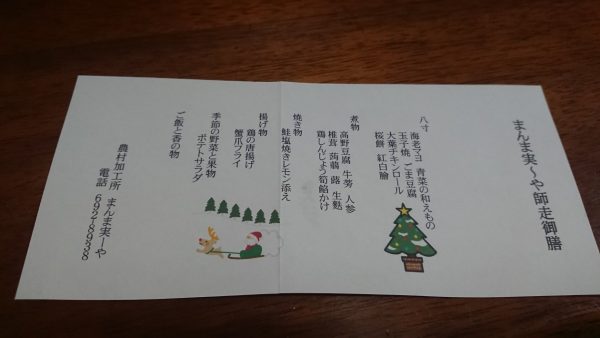 まんま実〜や師走御膳
八寸
海老マヨ 青菜の和えもの
玉子焼 ごま豆腐
大葉チキンロール
桜餅 紅白膾
煮物
高野豆腐 牛蒡 人参
椎茸 蒟蒻 蕗 生麩
鶏しんじょう筍餡かけ
焼き物
鮭塩焼きレモン添え
揚げ物
鶏の唐揚げ
蟹爪フライ
季節の野菜と果物
ポテトサラダ
ご飯と香の物
農村加工所 まんま実ーや
電話 692-8938